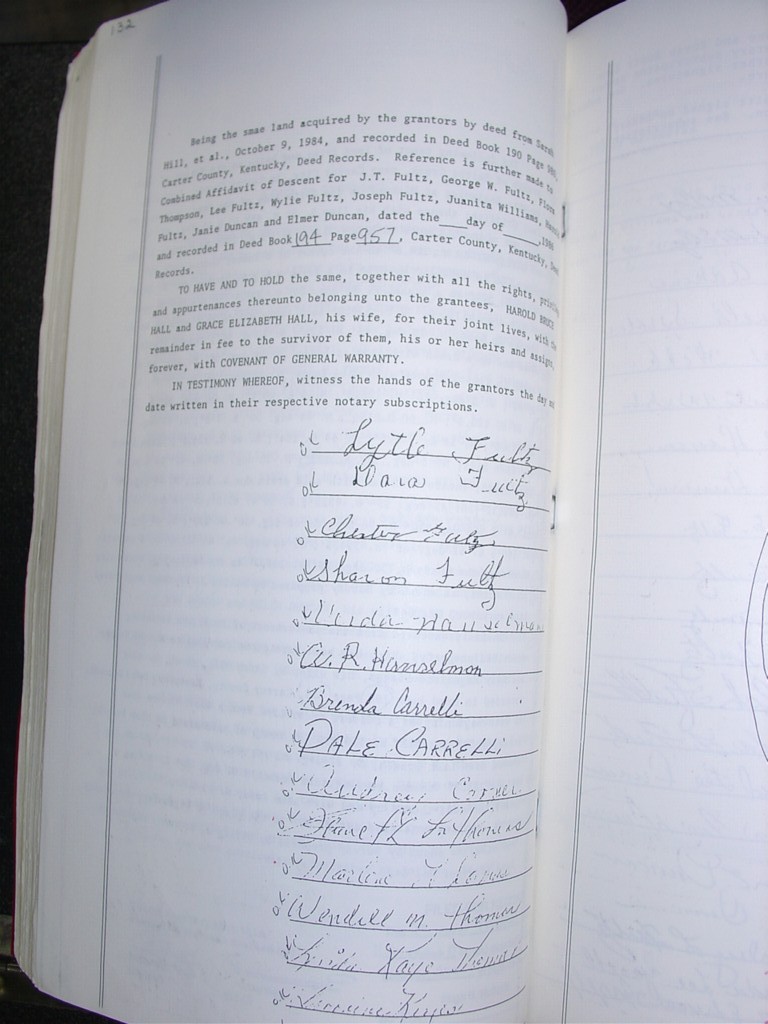 132
Being the smae land acquired by the grantors by deed from Sarah
Hill, et al., October 9, 1984, and recorded in Deed Book 190 Page
Carter County, Kentucky, Deed Records. Reference is further made to
Combined Affidavit of Descent for J.T. Fultz, George W. Fultz, Flora
Thompson, Lee Fultz, Wylie Fultz, Joseph Fultz, Juanita Williams,
Fultz, Janie Duncan and Elmer Duncan, dated the ___ day of _____, 1986
and recorded in Deed Book 194 Page 957, Carter County, Kentucky, Deed
Records.
TO HAVE AND TO HOLD the same, together with all the rights,
and appurtenances thereunto belonging unto the grantees, HAROLD BRUCE
HALL and GRACE ELIZABETH HALL, his wife, for their joint lives, with the
remainder in fee to the survivor of them, his or her heirs and assigns,
forever, with COVENANT OF GENERAL WARRANTY.
IN TESTIMONY WHEREOF, witness the hands of the grantors the day and
date written in their respective notary subscriptions.
Lytle Fultz
Fultz
Chester Fultz
Sharon Fultz
Linda Hanselman
W. R. Hanselman
Brenda Carrelli
DALE CARRELLI
Audrey
Marlene Thomas
Wendell M. Thomas
Linda Kaye Thomas
Lorraine